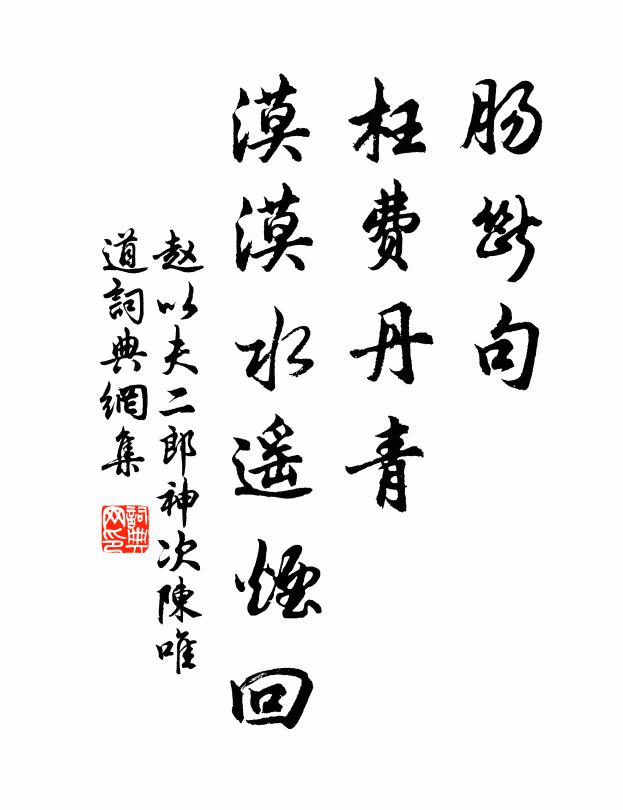 肠断句
枉费丹青
漠漠水遥煙回
赵以夫二郎神次陳唯
道詞典網集
詞典网印